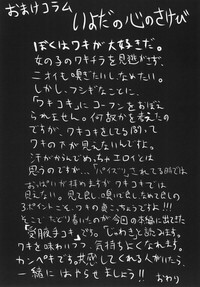 おまけコラム
いよだの心のさけび
ぼくはワキが大好きだ。
女の子のワキチラを見逃がさず、
ニオイも嗅ぎたいし、なめたい。
しかし、フシギなことに、
「ワキコキ」にコーフンをおぼえ
られません。何故かを考えたの
ですが、ワキコキをしてる間って
ワキの下が見えないんですよ。
汗がからんでめっちゃエロインとは
思うのですが…「パイズリ」されてる間では
おっぱいが拝めますがワキコキでは
見えない。見て良し嗅いで良しなめて良しの
3ポイントこそ、ワキの良さっちゅうことですよ!!!
そこでたどり着いたのが今回の本編に出せた
ワキを味わいつつ、気持ちよくなれます。
カンペキです。共感してくれる人がいたら、
一緒にはやらせましょう!!
おわり